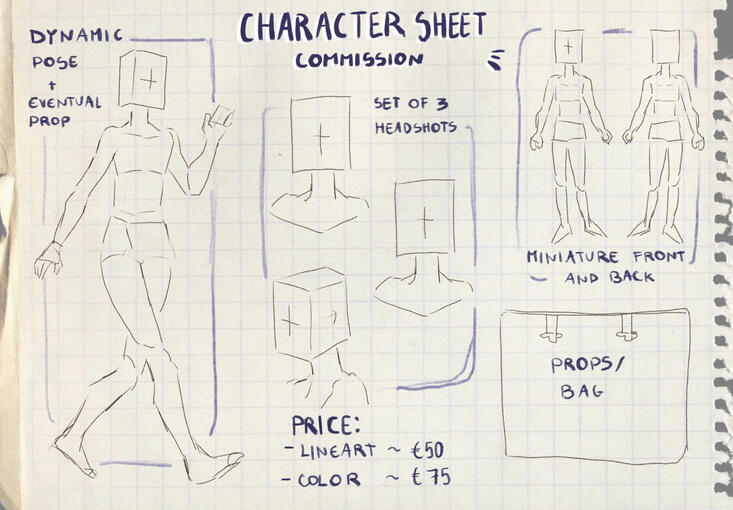 CHARACTER SHEET
COMMISSION
DYNAMIC
POSE
+
EVENTUAL
PROP
SET OF 3
HEADSHOTS
MINIATURE FRONT
AND BACK
PROPS/
BAG
PRICE:
- LINEART ~ €50
- COLOR ~ €75